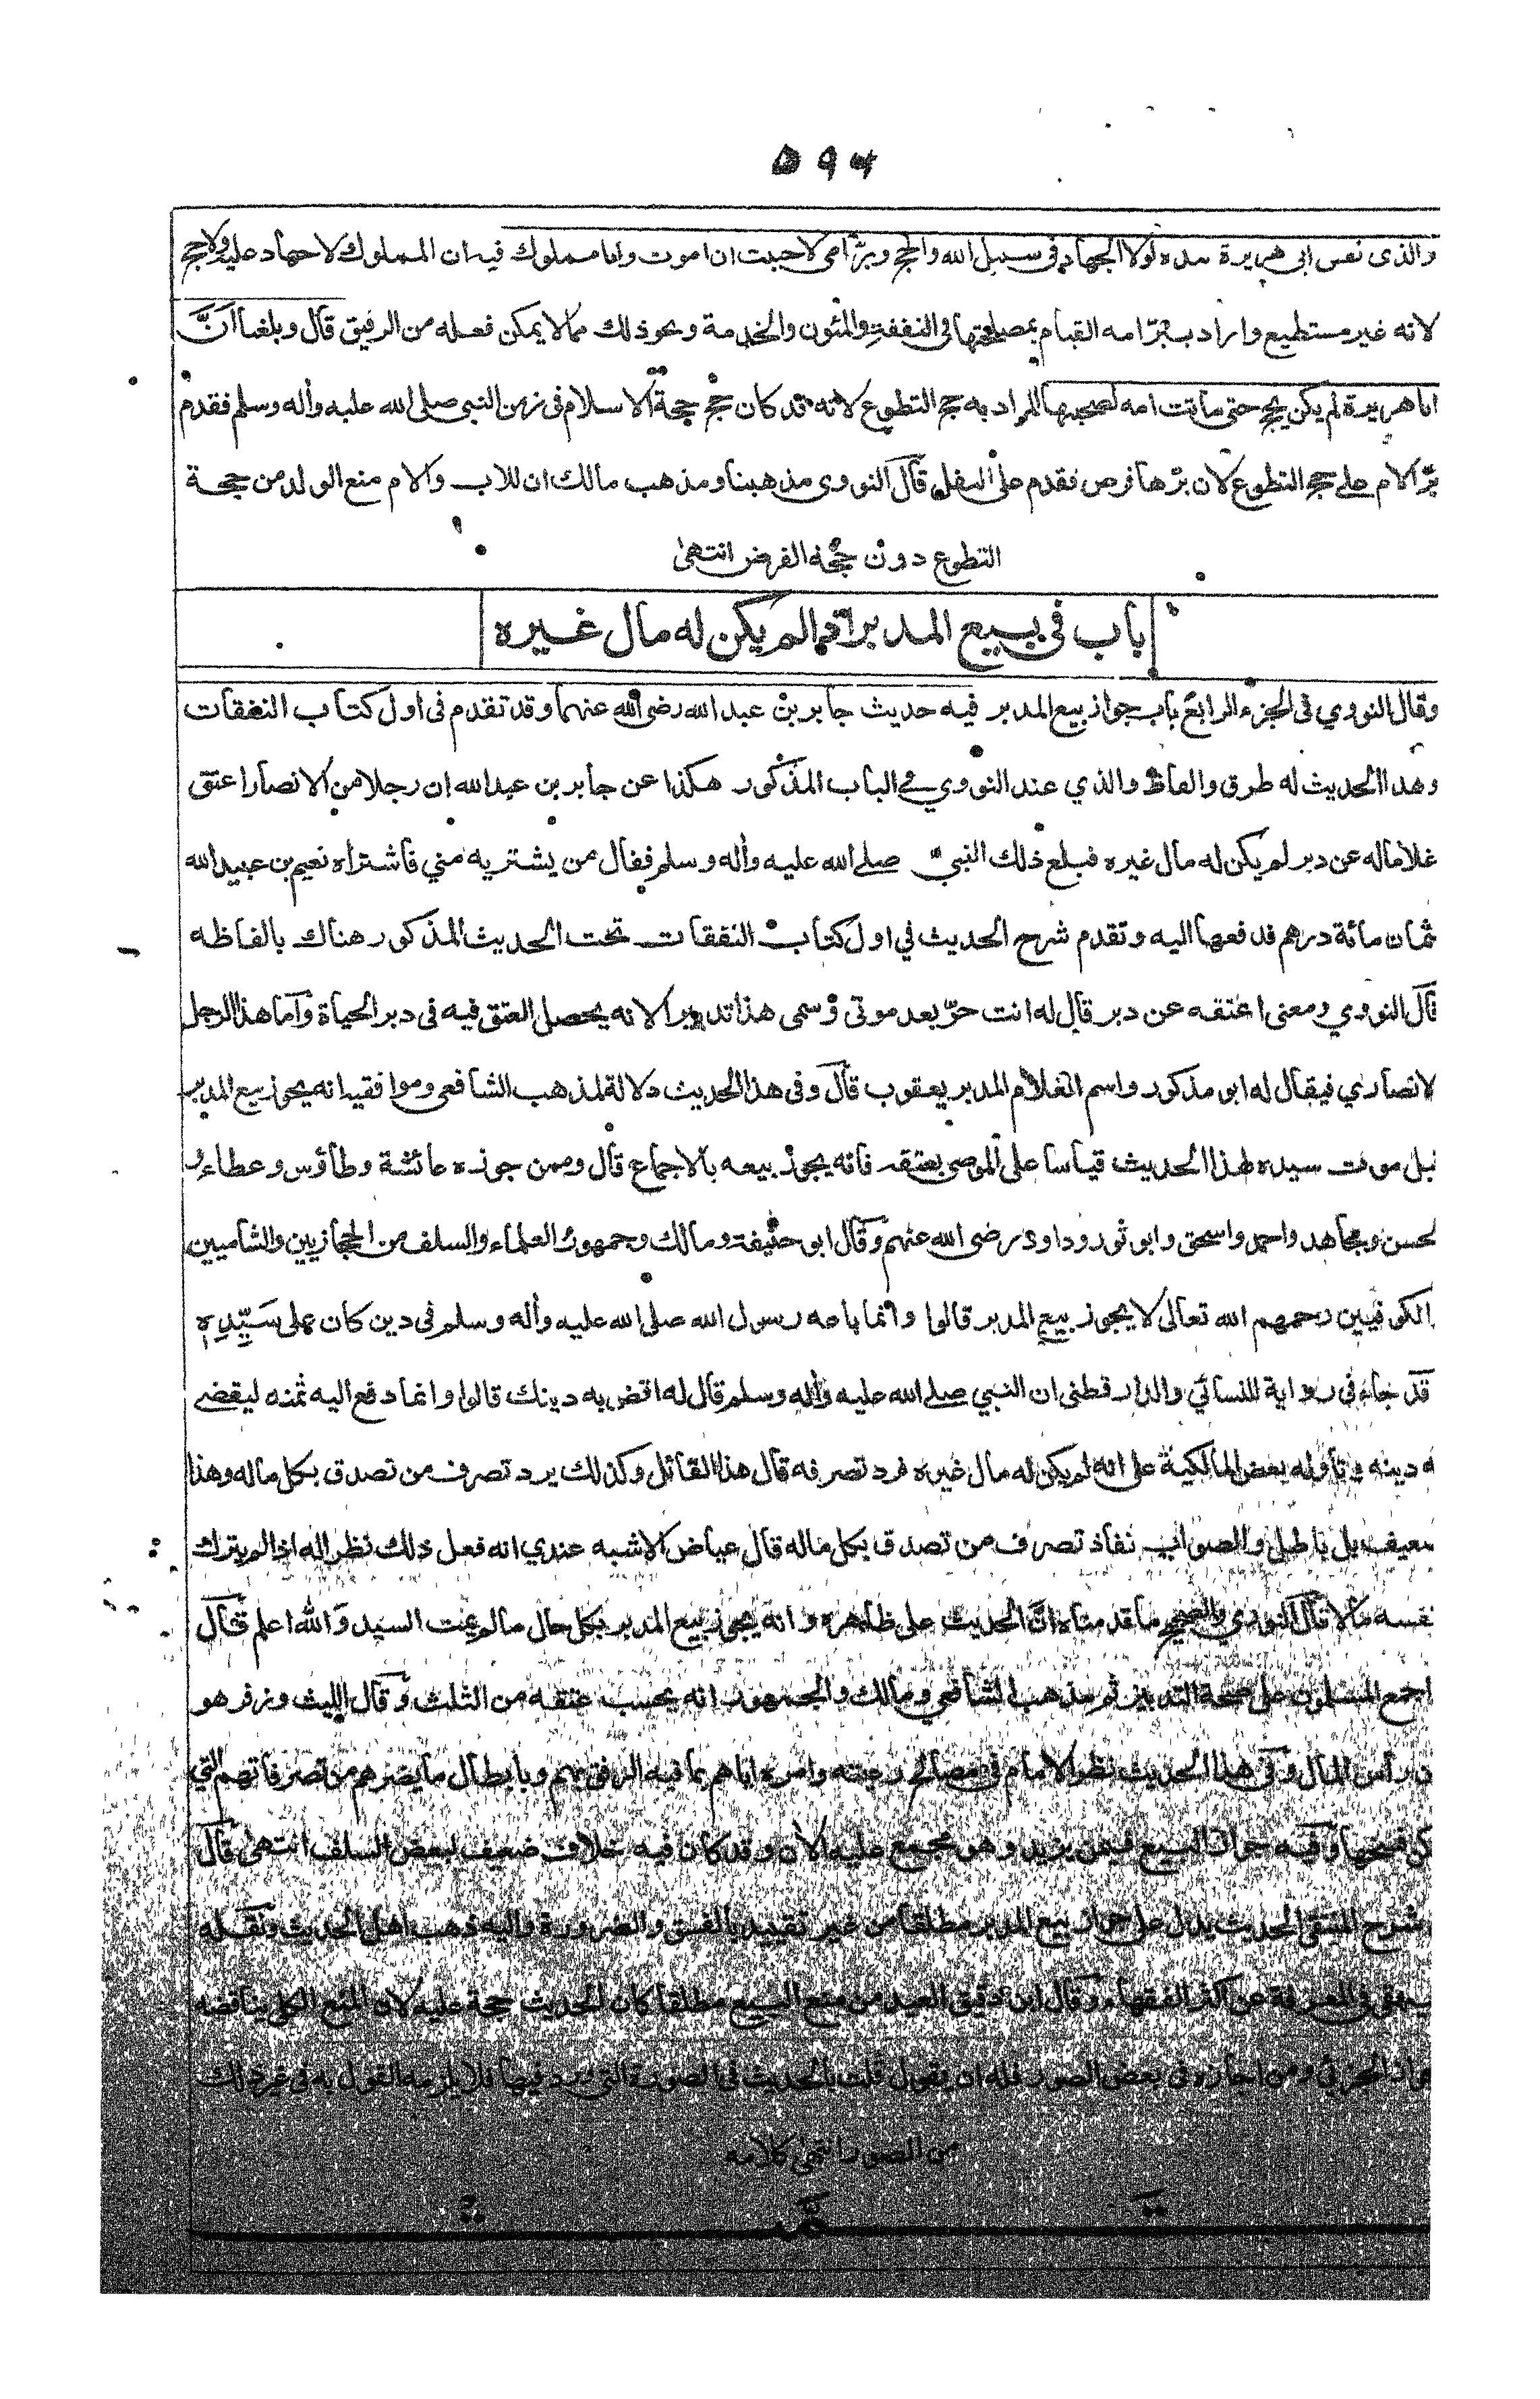 ۵۹۳
والذى نفس ابى هريرة بيده لولا الجهاد فى سبيل الله والحج وبر امى لاحببت ان اموت وانا مملوك فيه ان المملوك لا جهاد عليه ولا حج
لانه غير مستطيع واراد ببر امه القيام بمصلحتها فى النفقة والمئون والخدمة ونحو ذلك مما لا يمكن فعله من الرقيق قال وبلغنا ان
ابا هريرة لم يكن يحج حتى ماتت امه لصحبتها المراد به حج التطوع لانه قد كان حج حجة الاسلام فى زمن النبى صلى الله عليه وأله وسلم فقدم
بر الام على حج التطوع لان برها فرض فقدم على النفل قال النووى مذهبنا ومذهب مالك ان للاب والام منع الولد من حجة
التطوع دون حجة الفرض انتهى
باب فى بيع المدبر اذا لم يكن له مال غيره
وقال النووي فى الجزء الرابع باب جواز بيع المدبر فيه حديث جابر بن عبد الله رضى الله عنهما وقد تقدم فى اول كتاب النفقات
وهذا الحديث له طرق والفاظ والذي عند النووي في الباب المذكور هكذا عن جابر بن عبد الله ان رجلا من الانصار اعتق
غلاما له عن دبر لم يكن له مال غيره فبلغ ذلك النبي صلى الله عليه وأله وسلم فقال من يشتريه مني فاشتراه نعيم بن عبيد الله
ثمان مائة درهم فدفعها اليه وتقدم شرح الحديث في اول كتاب النفقات تحت الحديث المذكور هناك بالفاظه
قال النووي ومعنى اعتقه عن دبر قال له انت حر بعد موتى وسمى هذا تدبيرا لانه يحصل العتق فيه فى دبر الحياة واما هذا الرجل
لانصاري فيقال له ابو مذكور واسم الغلام المدبر يعقوب قال وفى هذا الحديث دلالة لمذهب الشافعى وموافقيه انه يجوز بيع المدبر
قبل موت سيده لهذا الحديث قياسا على الموصى بعتقه فانه يجوز بيعه بالاجماع قال وممن جوزه عائشة وطاؤس وعطاء و
لحسن ومجاهد واحمد واسحق وابو ثور وداود رضى الله عنهم وقال ابو حنيفة ومالك وجمهور العلماء والسلف من الحجازيين والشاميين
الكوفيين رحمهم الله تعالى لا يجوز بيع المدبر قالوا وانما باعه رسول الله صلى الله عليه وأله وسلم فى دين كان على سيده
قد جاء فى رواية للنسائي والدارقطنى ان النبي صلى الله عليه وأله وسلم قال له اقض به دينك قالوا وانما دفع اليه ثمنه ليقضي
ه دينه وتأوله بعض المالكية على انه لم يكن له مال غيره فرد تصرفه قال هذا القائل وكذلك يرد تصرف من تصدق بكل ماله وهذا
ضعيف بل باطل والصواب نفاذ تصرف من تصدق بكل ماله قال عياض الاشبه عندي انه فعل ذلك نظرا له اذا لم يترك
نفسه مالا قال النووي والصحيح ما قدمناه ان الحديث على ظاهره وانه يجوز بيع المدبر بكل حال ما لم يمت السيد والله اعلم قال
اجمع المسلمون على صحة التدبير ثم مذهب الشافعي ومالك والجمهور انه يحسب عتقه من الثلث وقال الليث وزفر هو
ن رأس المال وفى هذا الحديث نظر الامام فى مصالح رعيته وامره اياهم بما فيه الرفق بهم وبابطال ما يضرهم من تصرفاتهم التي
كن فسخها وفيه جواز البيع فيمن يزيد وهو مجمع عليه الأن وقد كان فيه خلاف ضعيف لبعض السلف انتهى قال
شرح المنتقى الحديث يدل على جواز بيع المدبر مطلقا من غير تقييد بالفسق والضرورة واليه ذهب اهل الحديث ونقله
بيهقى فى المعرفة عن اكثر الفقهاء وقال ابن دقيق العيد من منع البيع مطلقا كان الحديث حجة عليه لان المنع الكلى يناقضه
جواز الجزئى ومن اجازه فى بعض الصور فله ان يقول قلت بالحديث فى الصورة التى ورد فيها فلا يلزمه القول به فى غير ذلك
من الصور انتهى كلامه